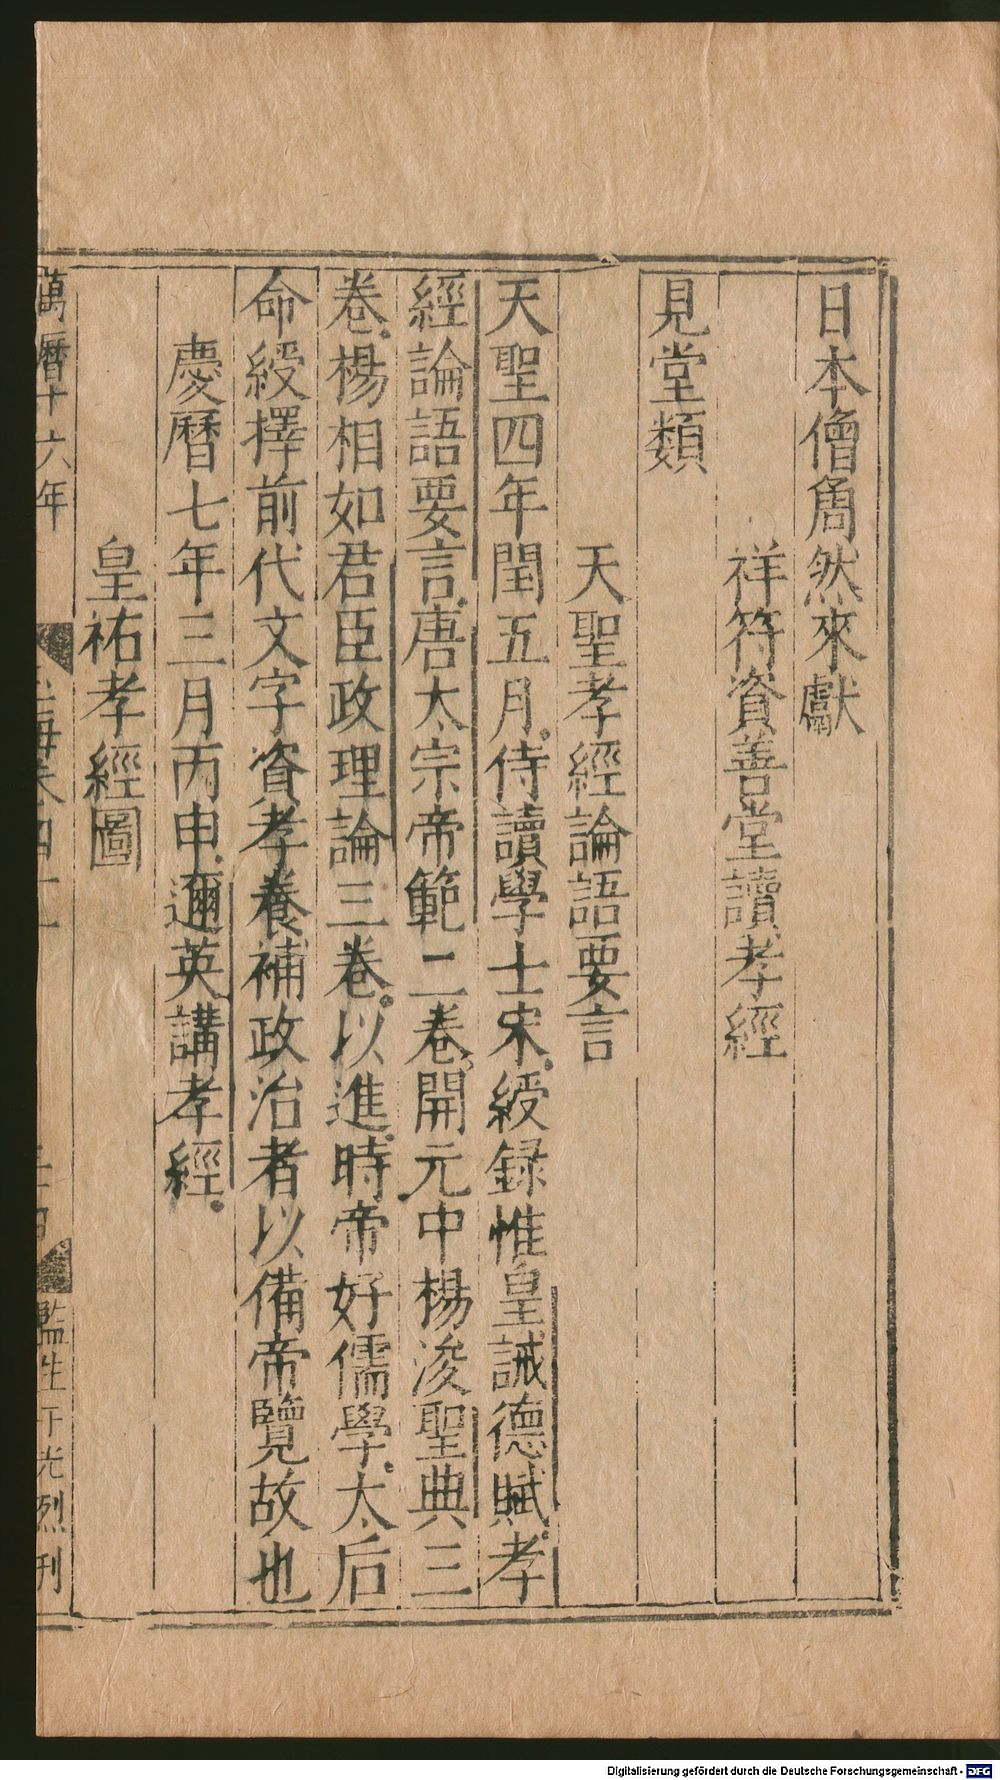 日本僧奝然來獻
祥符資善堂讀孝經
見堂類
天聖孝經論語要言
天聖四年閏五月侍讀學士宋綬録惟皇誡德賦孝
經論語要言唐太宗帝範二卷開元中楊浚聖典三
卷楊相如君臣政理論三卷以進時帝好儒學太后
命綬擇前代文字資孝養補政治者以備帝覽故也
慶曆七年三月丙申邇英講孝經
皇祐孝經圖
萬曆十六年
玉海卷四十一
監生卞光烈刊
Digitalisierung gefördert durch die Deutsche Forschungsgemeinschaft - DFG